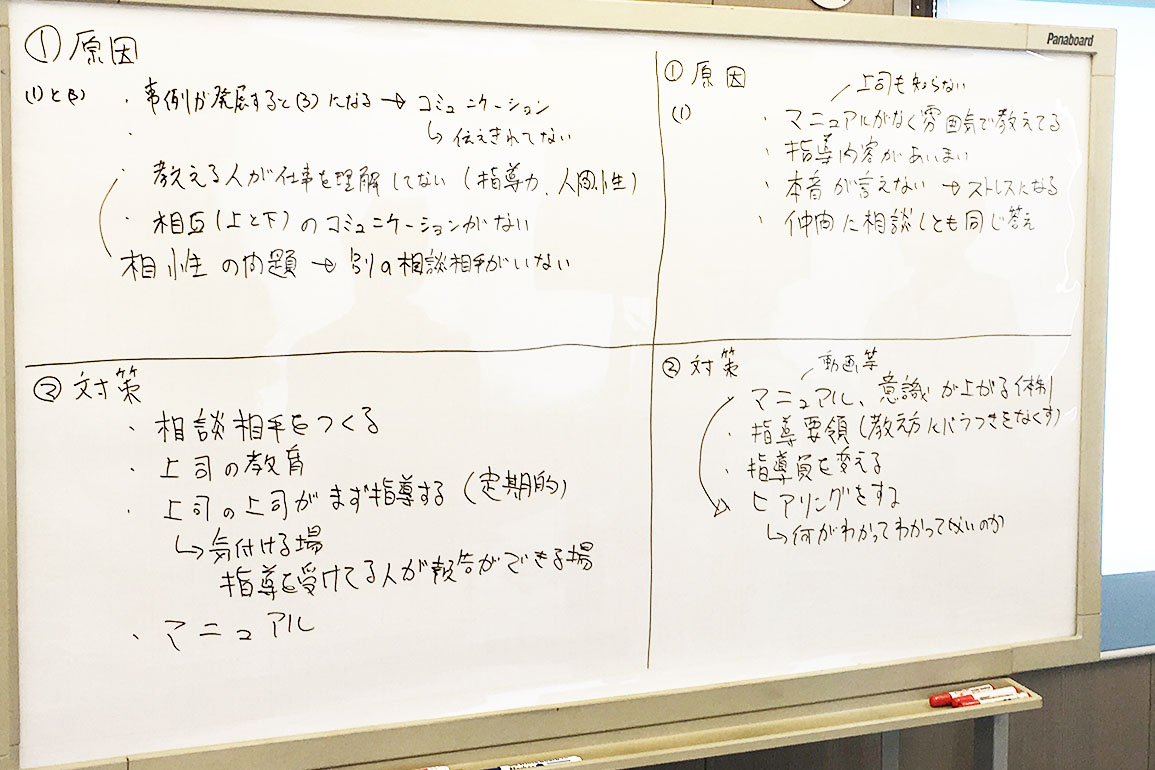 ① 原因
(1)と(3) ・事例が発展すると(3)になる → コミュニケーション
↳ 伝えきれてない
・
・教える人が仕事を理解してない (指導力、人間性)
・相互(上と下)のコミュニケーションがない
相性の問題 → 別の相談相手がいない
② 対策
・相談相手をつくる
・上司の教育
・上司の上司がまず指導する (定期的)
↳ 気付ける場
指導を受けてる人が報告ができる場
・マニュアル
Panaboard
① 原因
上司も知らない
(1) ・マニュアルがなく雰囲気で教えてる
・指導内容があいまい
・本音が言えない → ストレスになる
・仲間に相談しても同じ答え
② 対策
動画等
・マニュアル、意識が上がる体制
・指導要領(教え方にバラつきをなくす)
・指導員を変える
ヒアリングをする
↳ 何がわかってわかってないのか